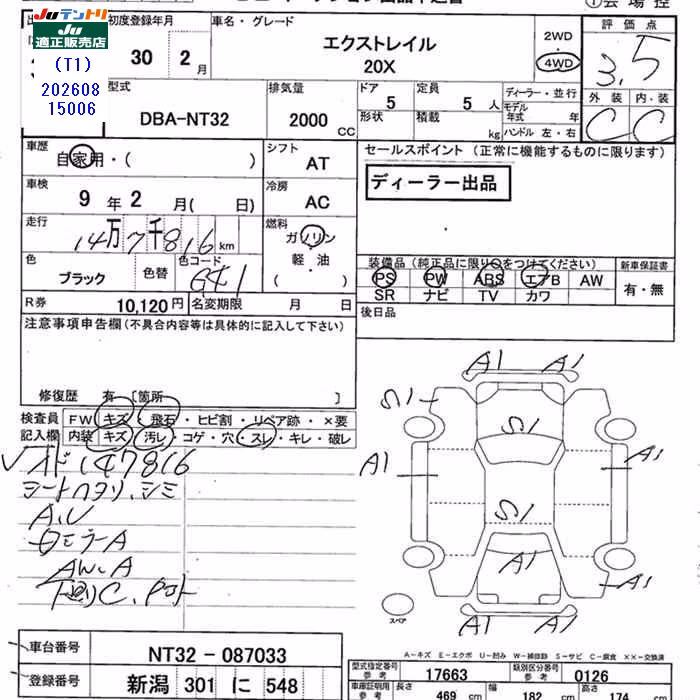 会場控
JUテントリ
JU テントリ
適正販売店
(T1)
202608
15006
初度登録年月
30 年 2 月
車名・グレード
エクストレイル
20X
2WD
4WD
評価点
3.5
外装 内・装
C C
型式
DBA-NT32
排気量
2000 CC
ドア
5
形状
定員
5 人
積載 kg
ディーラー・並行
モデル年式 年
ハンドル 左・右
車歴
自家用・( )
シフト
AT
セールスポイント (正常に機能するものに限ります)
ディーラー出品
車検
9 年 2 月( 日)
冷房
AC
走行
14万7千816 km
燃料
ガソリン
軽・油
( )
色
ブラック
色替
色コード
G41
装備品 (純正品に限り○をつけてください)
PS PW ABS エアB AW
SR ナビ TV カワ
新車保証書
有・無
R券 10,120円
名変期限 月 日
後日品
注意事項申告欄 (不具合内容等は具体的に記入して下さい)
修復歴 有 [箇所 ]
検査員
記入欄
FW キズ・飛石・ヒビ割・リペア跡・×要
内装 キズ・汚レ・コゲ・穴・スレ・キレ・破レ
147816
シートヘタリ、シミ
A、U
ミラーA
AW、A
下廻りC、
A1 A1
S1
S1
A1
A1
S1
A1
A1
A1 A1
スペア
A-キズ E-エクボ U-凹み W-補修跡 S-サビ C-腐食 ××-交換済
車台番号
NT32-087033
登録番号
新潟 301 に 548
型式指定番号
参考
17663
類別区分番号
参考
0126
車庫証明用
参考
長さ 469 cm
幅 182 cm
高さ 174 cm